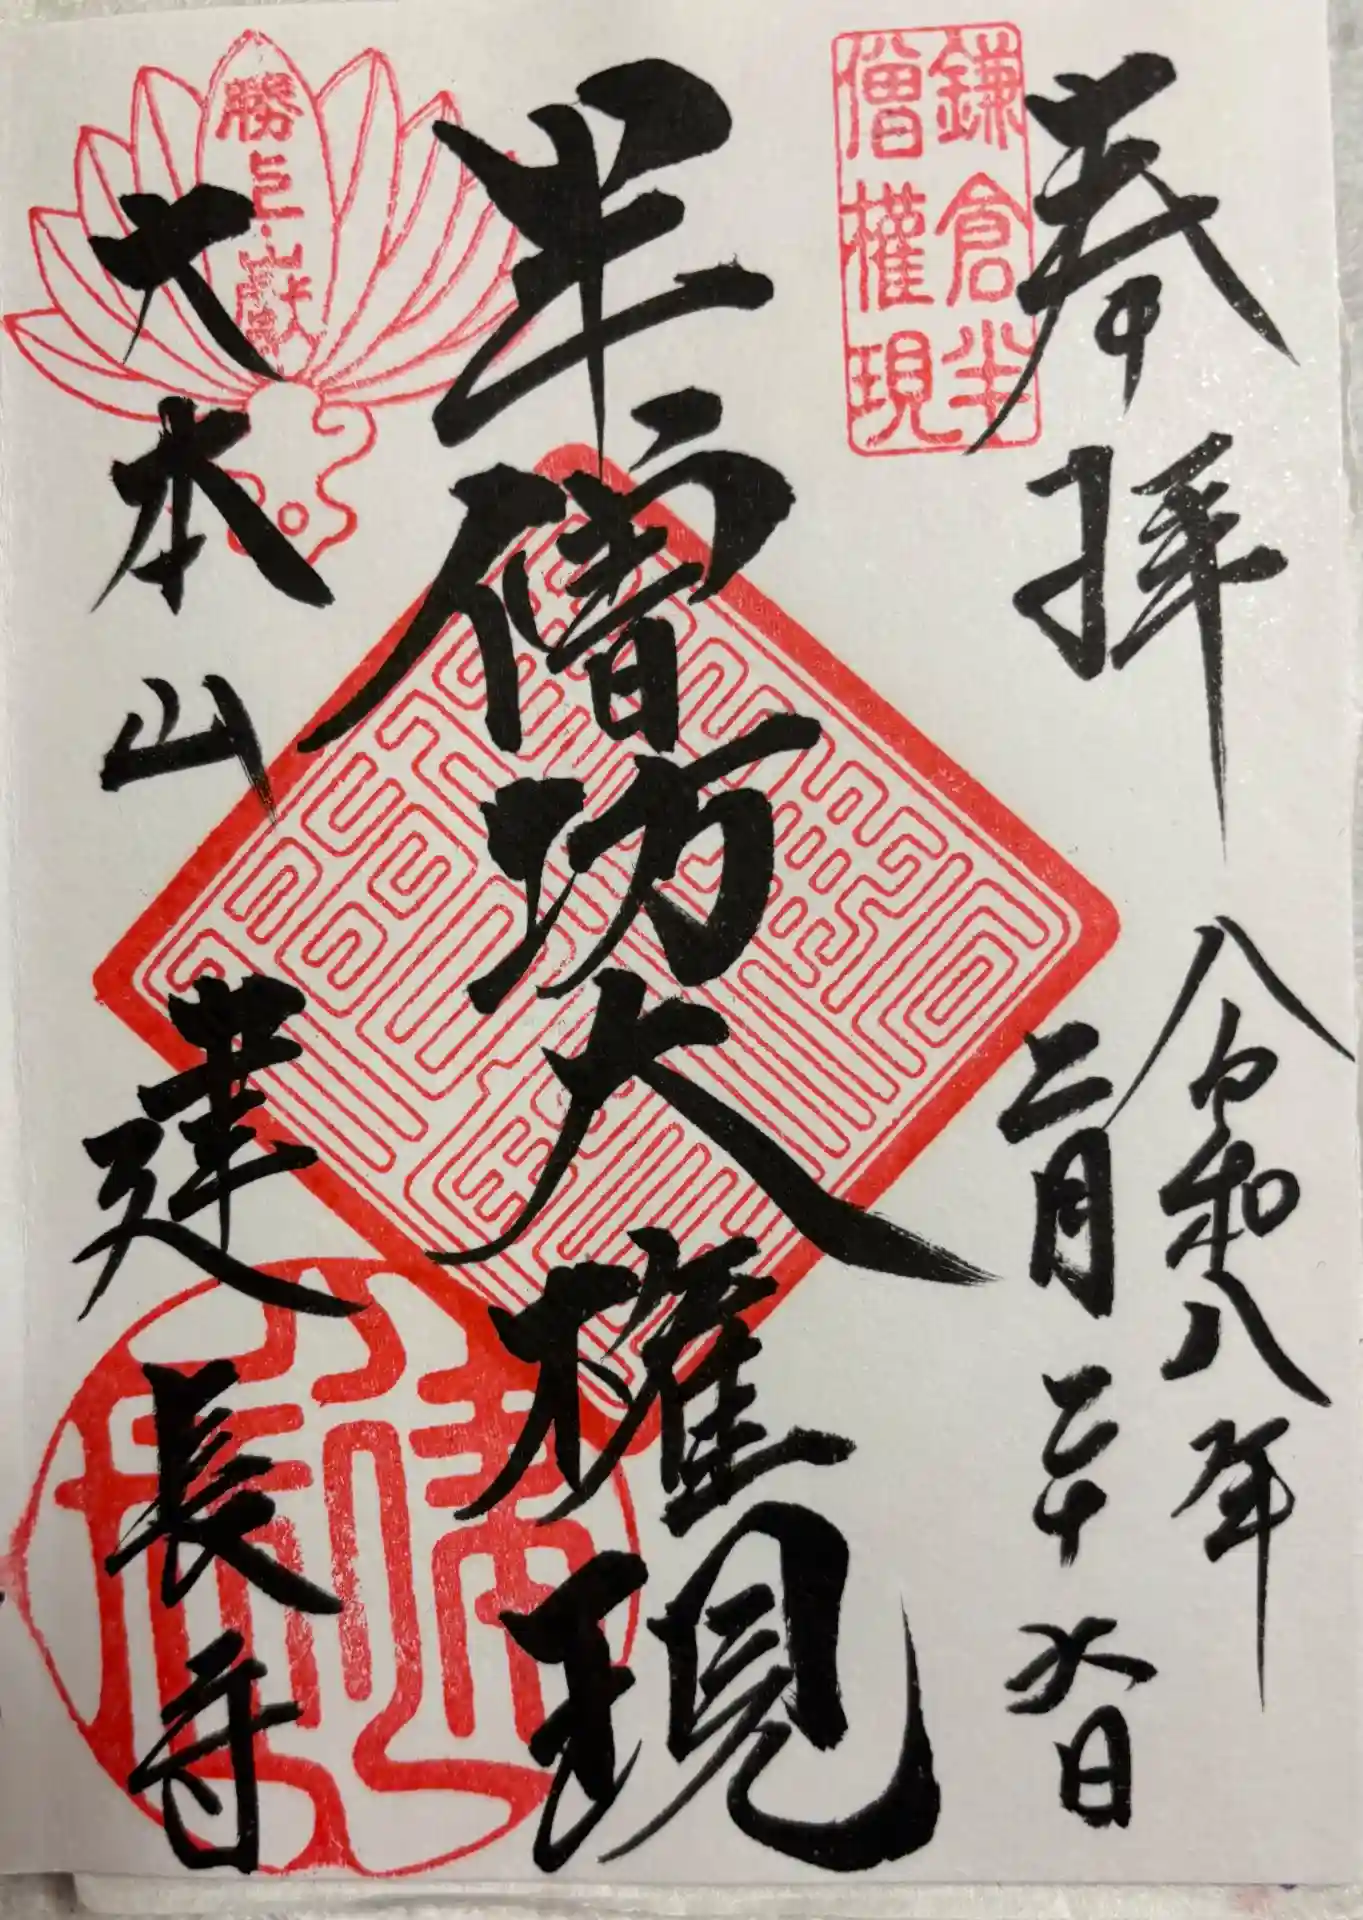 奉拝
令和八年
二月二十六日
鎌倉半
僧權現
半僧坊大権現
勝上嶽
大本山建長寺